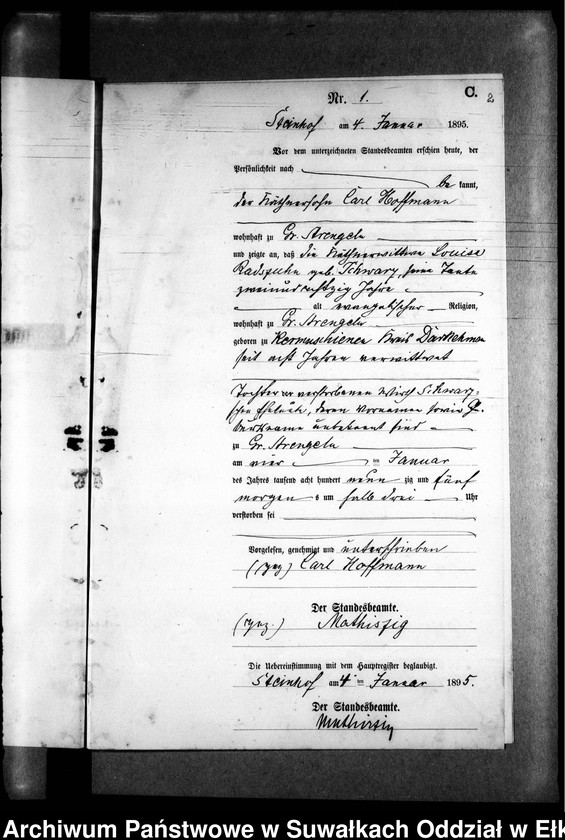 C.
2
Nr. 1.
Steinhof am 4. Januar 1895.
Vor dem unterzeichneten Standesbeamten erschien heute, der
Persönlichkeit nach
be kannt,
der Käthnersohn Carl Hoffmann
wohnhaft zu Gr. Strengeln
und zeigte an, daß die Käthnerwittwe Louise
Radszuhn geb. Schwarz, seine Tante
zweiundachtzig Jahre
alt evangelischer Religion,
wohnhaft zu Gr. Strengeln
geboren zu Kermuschienen Kreis Darkehmen
seit acht Jahren verwittwet
Tochter der verstorbenen Wirth Schwarz-
schen Eheleute, deren Vornamen sowie
unbekannt sind
zu Gr. Strengeln
am vier ten Januar
des Jahres tausend acht hundert neun zig und fünf
morgen s um halb drei Uhr
verstorben sei
Vorgelesen, genehmigt und unterschrieben
(gez.) Carl Hoffmann
Der Standesbeamte.
(gez.) Mathiszig
Die Uebereinstimmung mit dem Hauptregister beglaubigt.
Steinhof am 4 ten Januar 1895.
Der Standesbeamte.
Mathiszig
Archiwum Państwowe w Suwałkach Oddział w Ełk